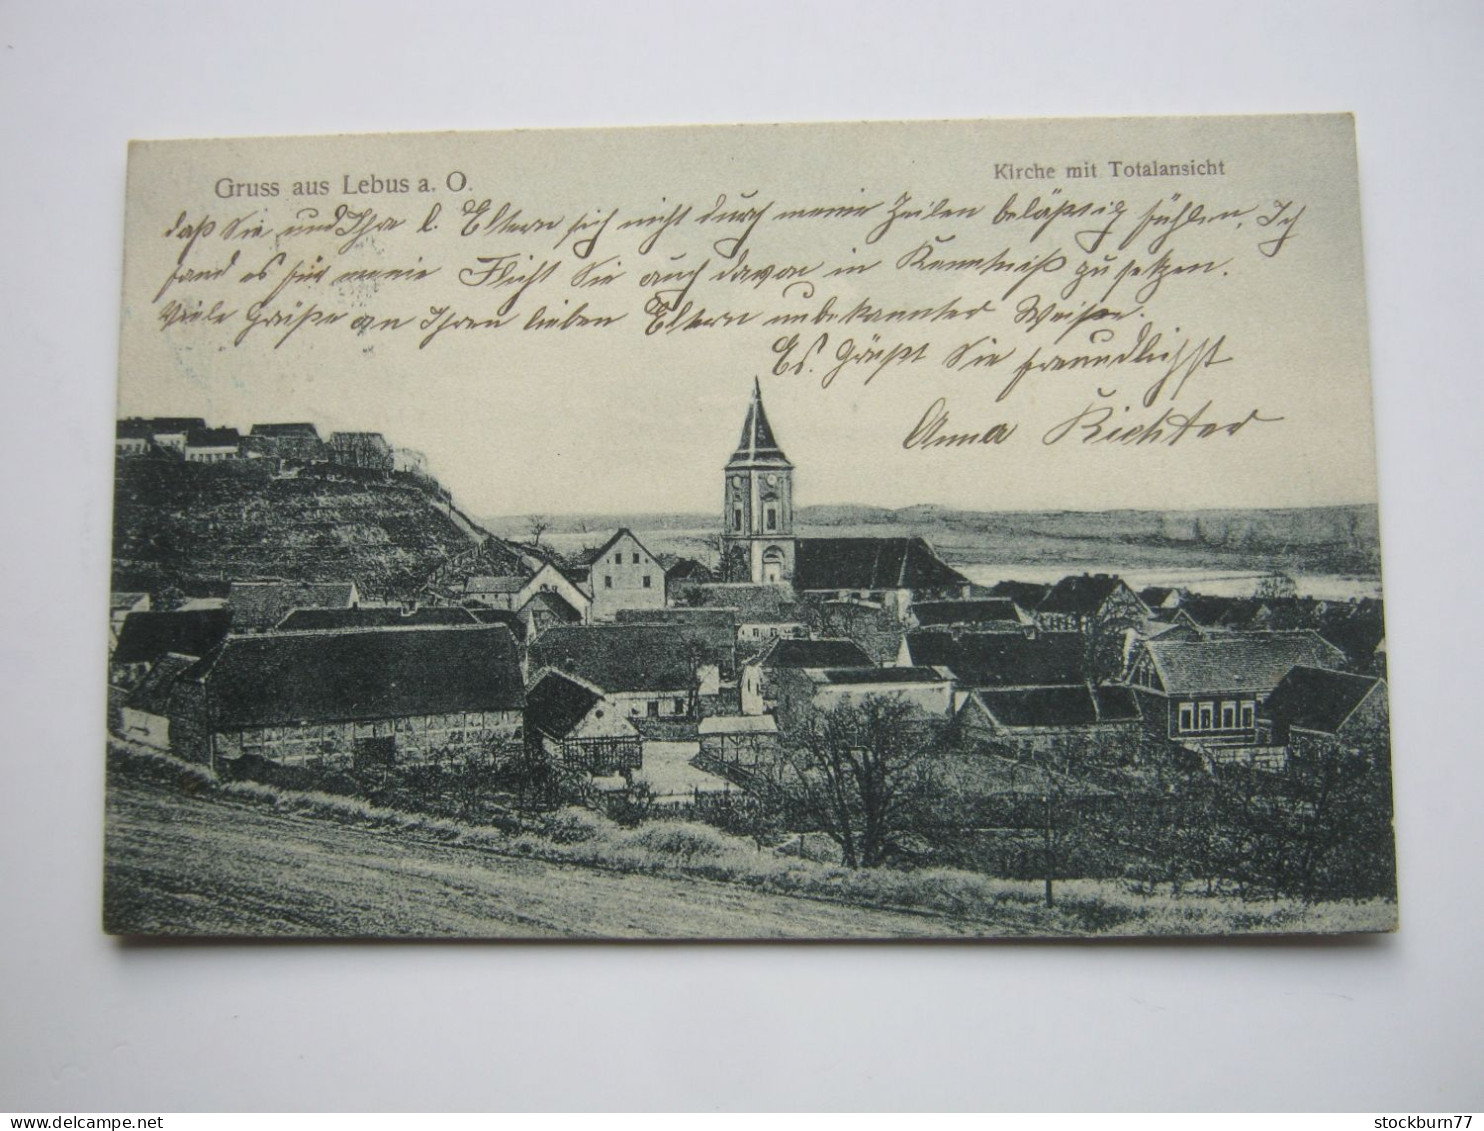 Gruss aus Lebus a. O.
Kirche mit Totalansicht
daß Sie und Ihre l. Eltern sich nicht durch meine Zeilen belästig fühlen, Ich
fand es für meine Flicht Sie auch davon in Kenntniß zu setzen.
Viele Grüße an Ihren lieben Eltern unbekannter Weise.
Es Grüßt Sie freundlichst
Anna Richter
stockburn77